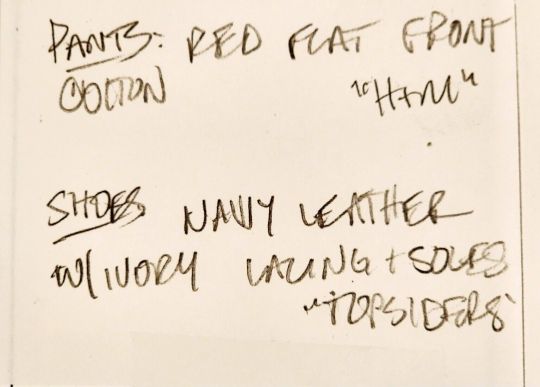 PANTS: RED FLAT FRONT
COTTON "H+M"
SHOES NAVY LEATHER
W/IVORY LACING + SOLES
"TOPSIDERS"